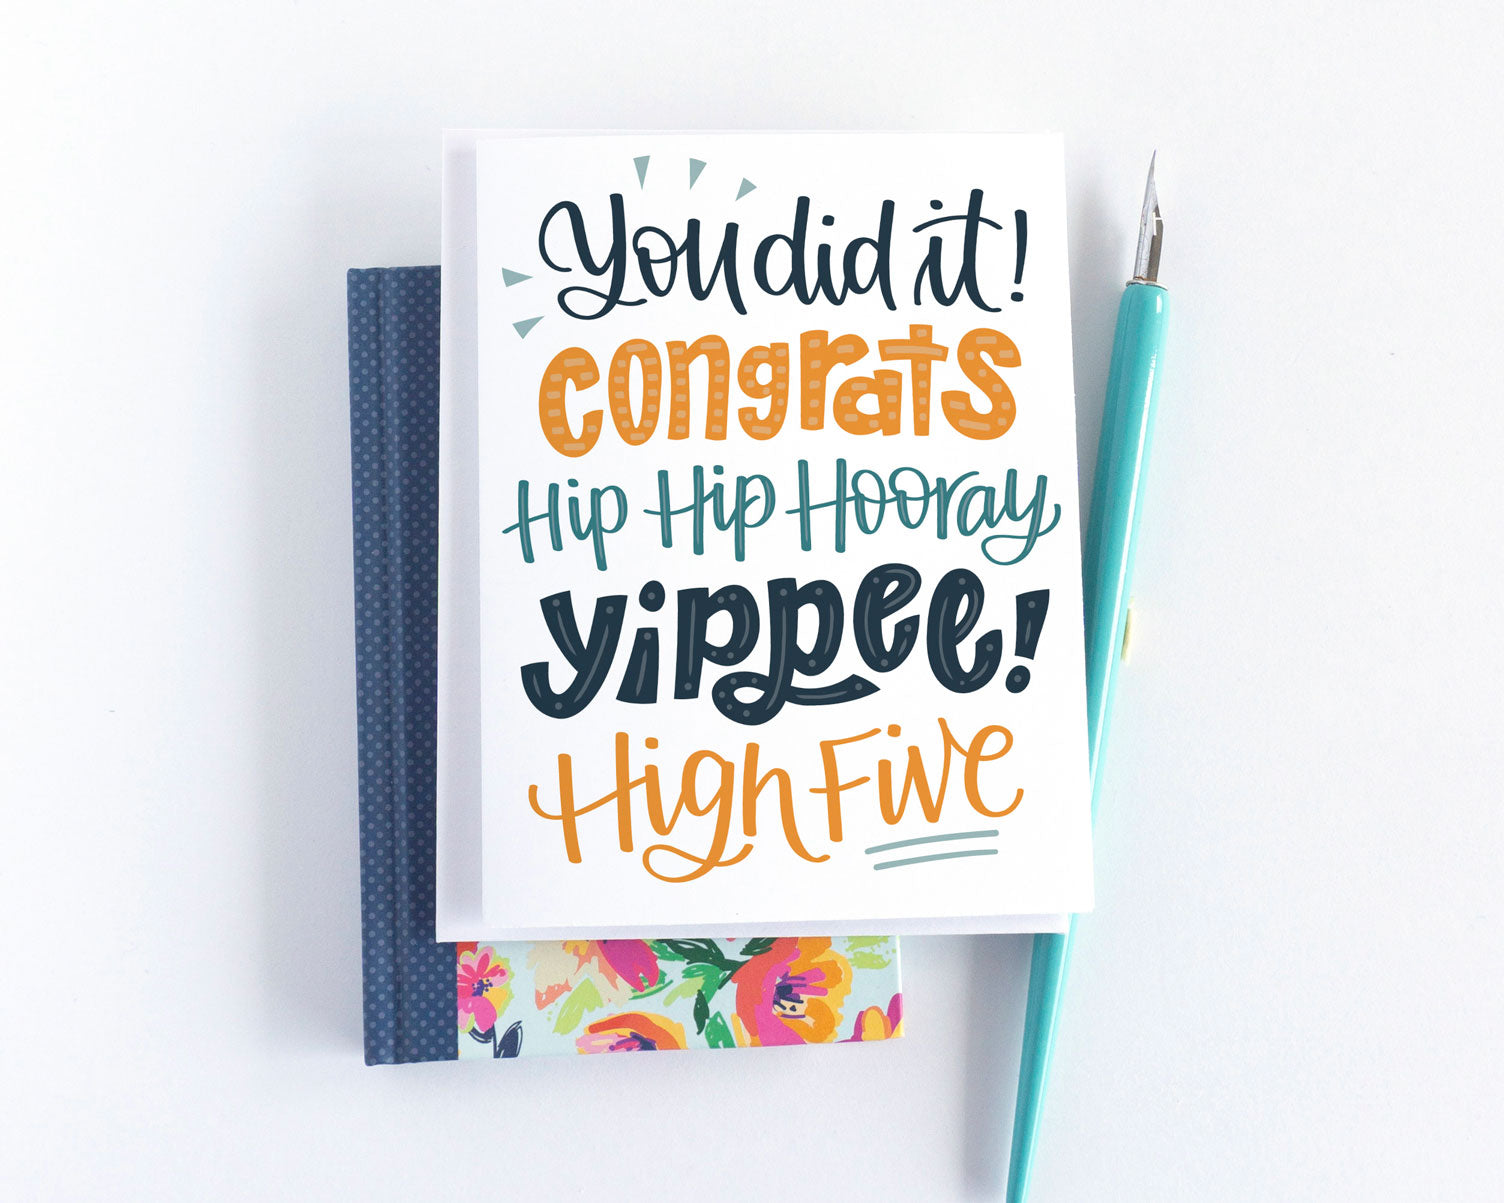 You did it!
congrats
Hip Hip Hooray
yippee!
High Five